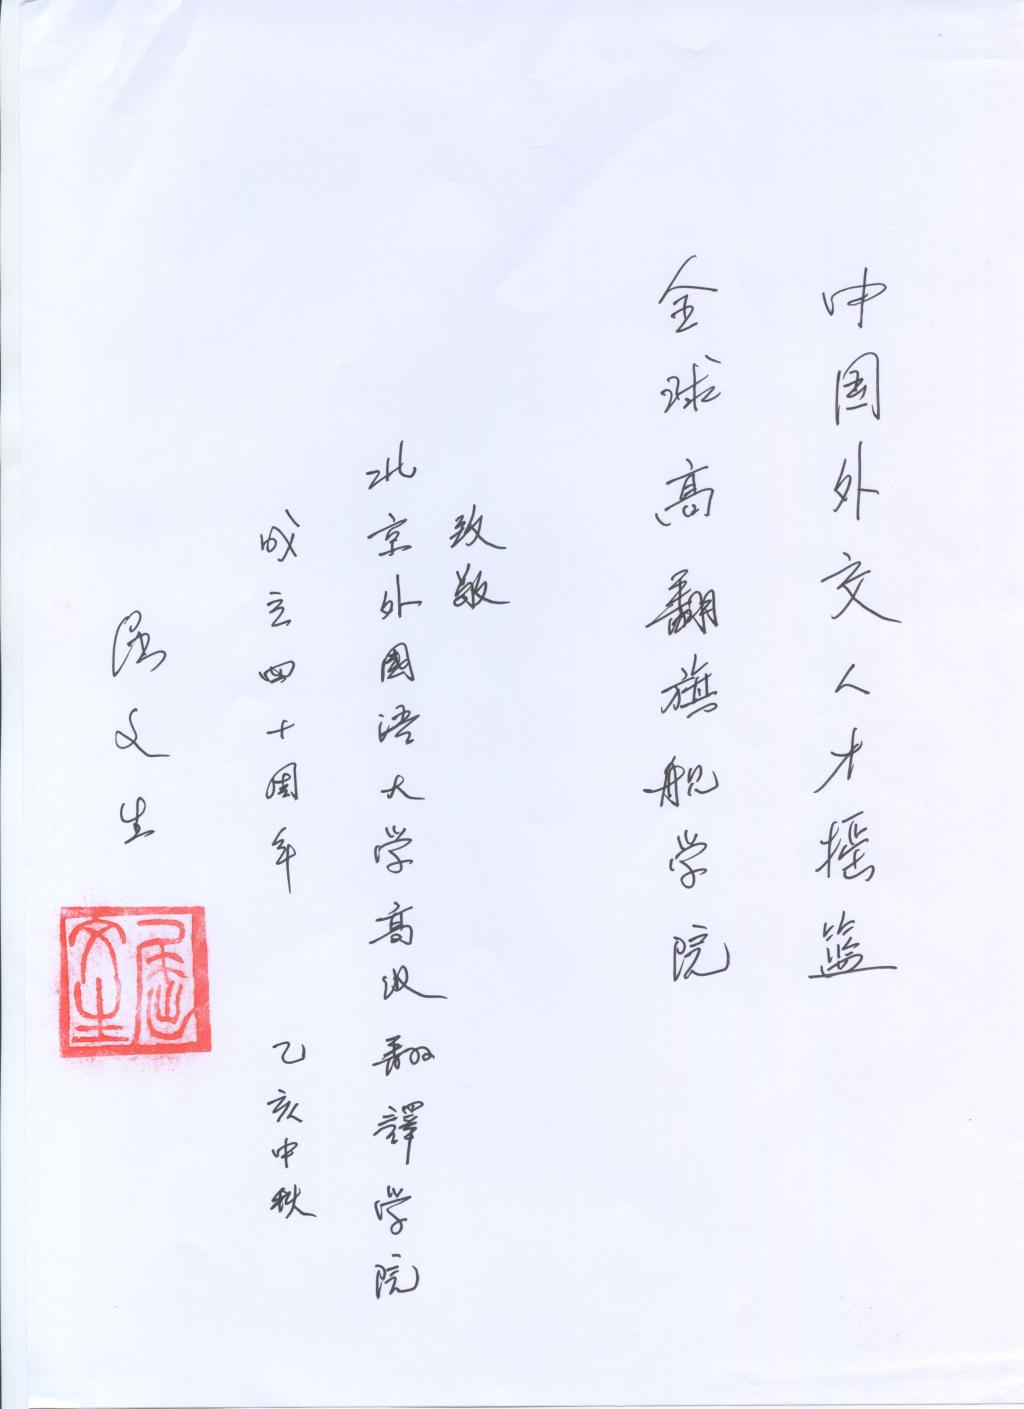 中国外交人才摇篮
全球高翻旗舰学院
致敬
北京外國语大学高级翻譯学院
成立四十周年
乙亥中秋
屈文生
屈文生